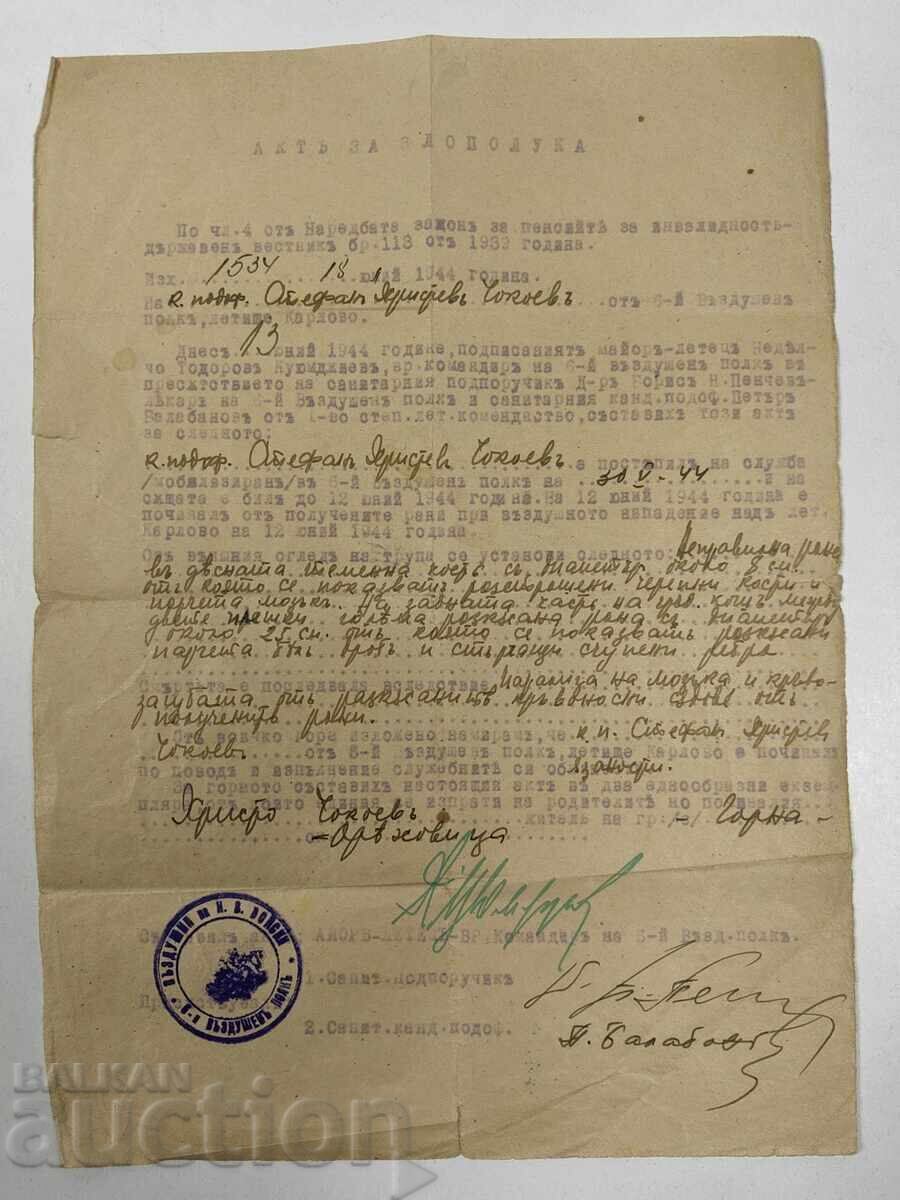 АКТЪ ЗА ЗЛОПОЛУКА
По чл.4 отъ Наредбата законъ за пенсиитѣ за инвалидность-
държавенъ вестникъ бр.113 отъ 1939 година.
Изх. 1534 18 юний 1944 година.
На к. подоф. Стефанъ Христевъ Чокоевъ отъ 6-й Въздушенъ
полкъ, летище Карлово.
Днесъ 13 юний 1944 година, подписаниятъ майоръ-летецъ Недѣл-
чо Тодоровъ Куюмджиевъ, вр. командиръ на 6-й въздушенъ полкъ въ
присѫтствието на санитарния подпоручик Д-ръ Борисъ Н. Пенчевъ-
лѣкаръ на 6-й Въздушенъ полкъ и санитарния канд. подоф. Петъръ
Балабановъ отъ 1-во степ. лет. комендаство, съставихъ този актъ
за следното:
к. подоф. Стефанъ Христевъ Чокоевъ е постѫпилъ на служба
/мобилизиранъ/ въ 6-й въздушенъ полкъ на 30 V - 44 и на
сѫщата е билъ до 12 юний 1944 година. На 12 юний 1944 година е
починалъ отъ полученитѣ рани при въздушното нападение надъ лет.
Карлово на 12 юний 1944 година.
Отъ външния огледъ на трупа се установи следното: Неправилна рана
въ дѣсната теменна кость съ диаметъръ около 8 см.
отъ която се показватъ разтрошени черепни кости и
парчета мозъкъ. На задната часть на грѫд. кошъ между
дветѣ плешки голѣма разкѫсана рана съ диаметъръ
около 25 см. отъ която се показватъ разкѫсани
парчета бѣлъ дробъ и стърчащи счупени ребра.
Смъртьта е последвала вследствие парализа на мозъка и кръво-
загубата отъ разкѫсанитѣ кръвоносни сѫдове отъ
полученитѣ рани.
Отъ всичко горе изложено намирамъ, че к. п. Стефанъ Христевъ
Чокоевъ отъ 6-й Въздушенъ полкъ, летище Карлово е починалъ
по поводъ и изпълнение служебнитѣ си обязаности.
За горното съставихъ настоящия актъ въ два еднообразни екзем-
пляра, отъ които единия се изпрати на родителитѣ на починалия
Христо Чокоевъ жителъ на гр./с./ - Горна -
- Орѣховица
Съставилъ акта: МАЙОРЪ-ЛЕТЕЦЪ-ВР. Командиръ на 6-й Възд. полкъ.
1. Санит. подпоручикъ
2. Санит. канд. подоф. П. Балабановъ
ВЪЗДУШНИ на Н. В. ВОЙСКИ
6-й ВЪЗДУШЕНЪ ПОЛКЪ
BALKAN
auction